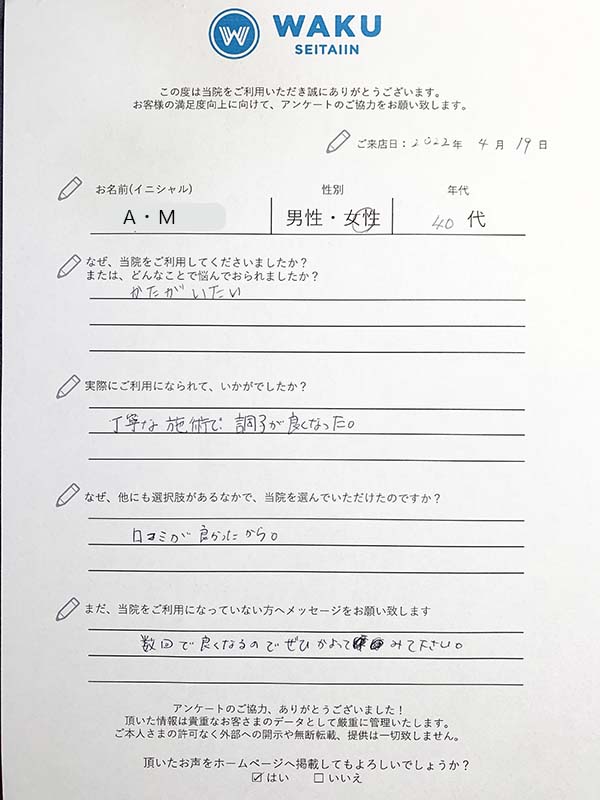 WAKU
SEITAIIN
この度は当院をご利用いただき誠にありがとうございます。
お客様の満足度向上に向けて、アンケートのご協力をお願い致します。
ご来店日：2022年 4月 19日
お名前(イニシャル) 性別 年代
A・M 男性・女性 40代
なぜ、当院をご利用してくださいましたか？
または、どんなことで悩んでおられましたか？
かたがいたい
実際にご利用になられて、いかがでしたか？
丁寧な施術で調子が良くなった。
なぜ、他にも選択肢があるなかで、当院を選んでいただけたのですか？
口コミが良かったから。
まだ、当院をご利用になっていない方へメッセージをお願い致します
数回で良くなるのでぜひかよってみて下さい。
アンケートのご協力、ありがとうございました！
頂いた情報は貴重なお客さまのデータとして厳重に管理いたします。
ご本人さまの許可なく外部への開示や無断転載、提供は一切致しません。
頂いたお声をホームページへ掲載してもよろしいでしょうか？
☑はい □いいえ